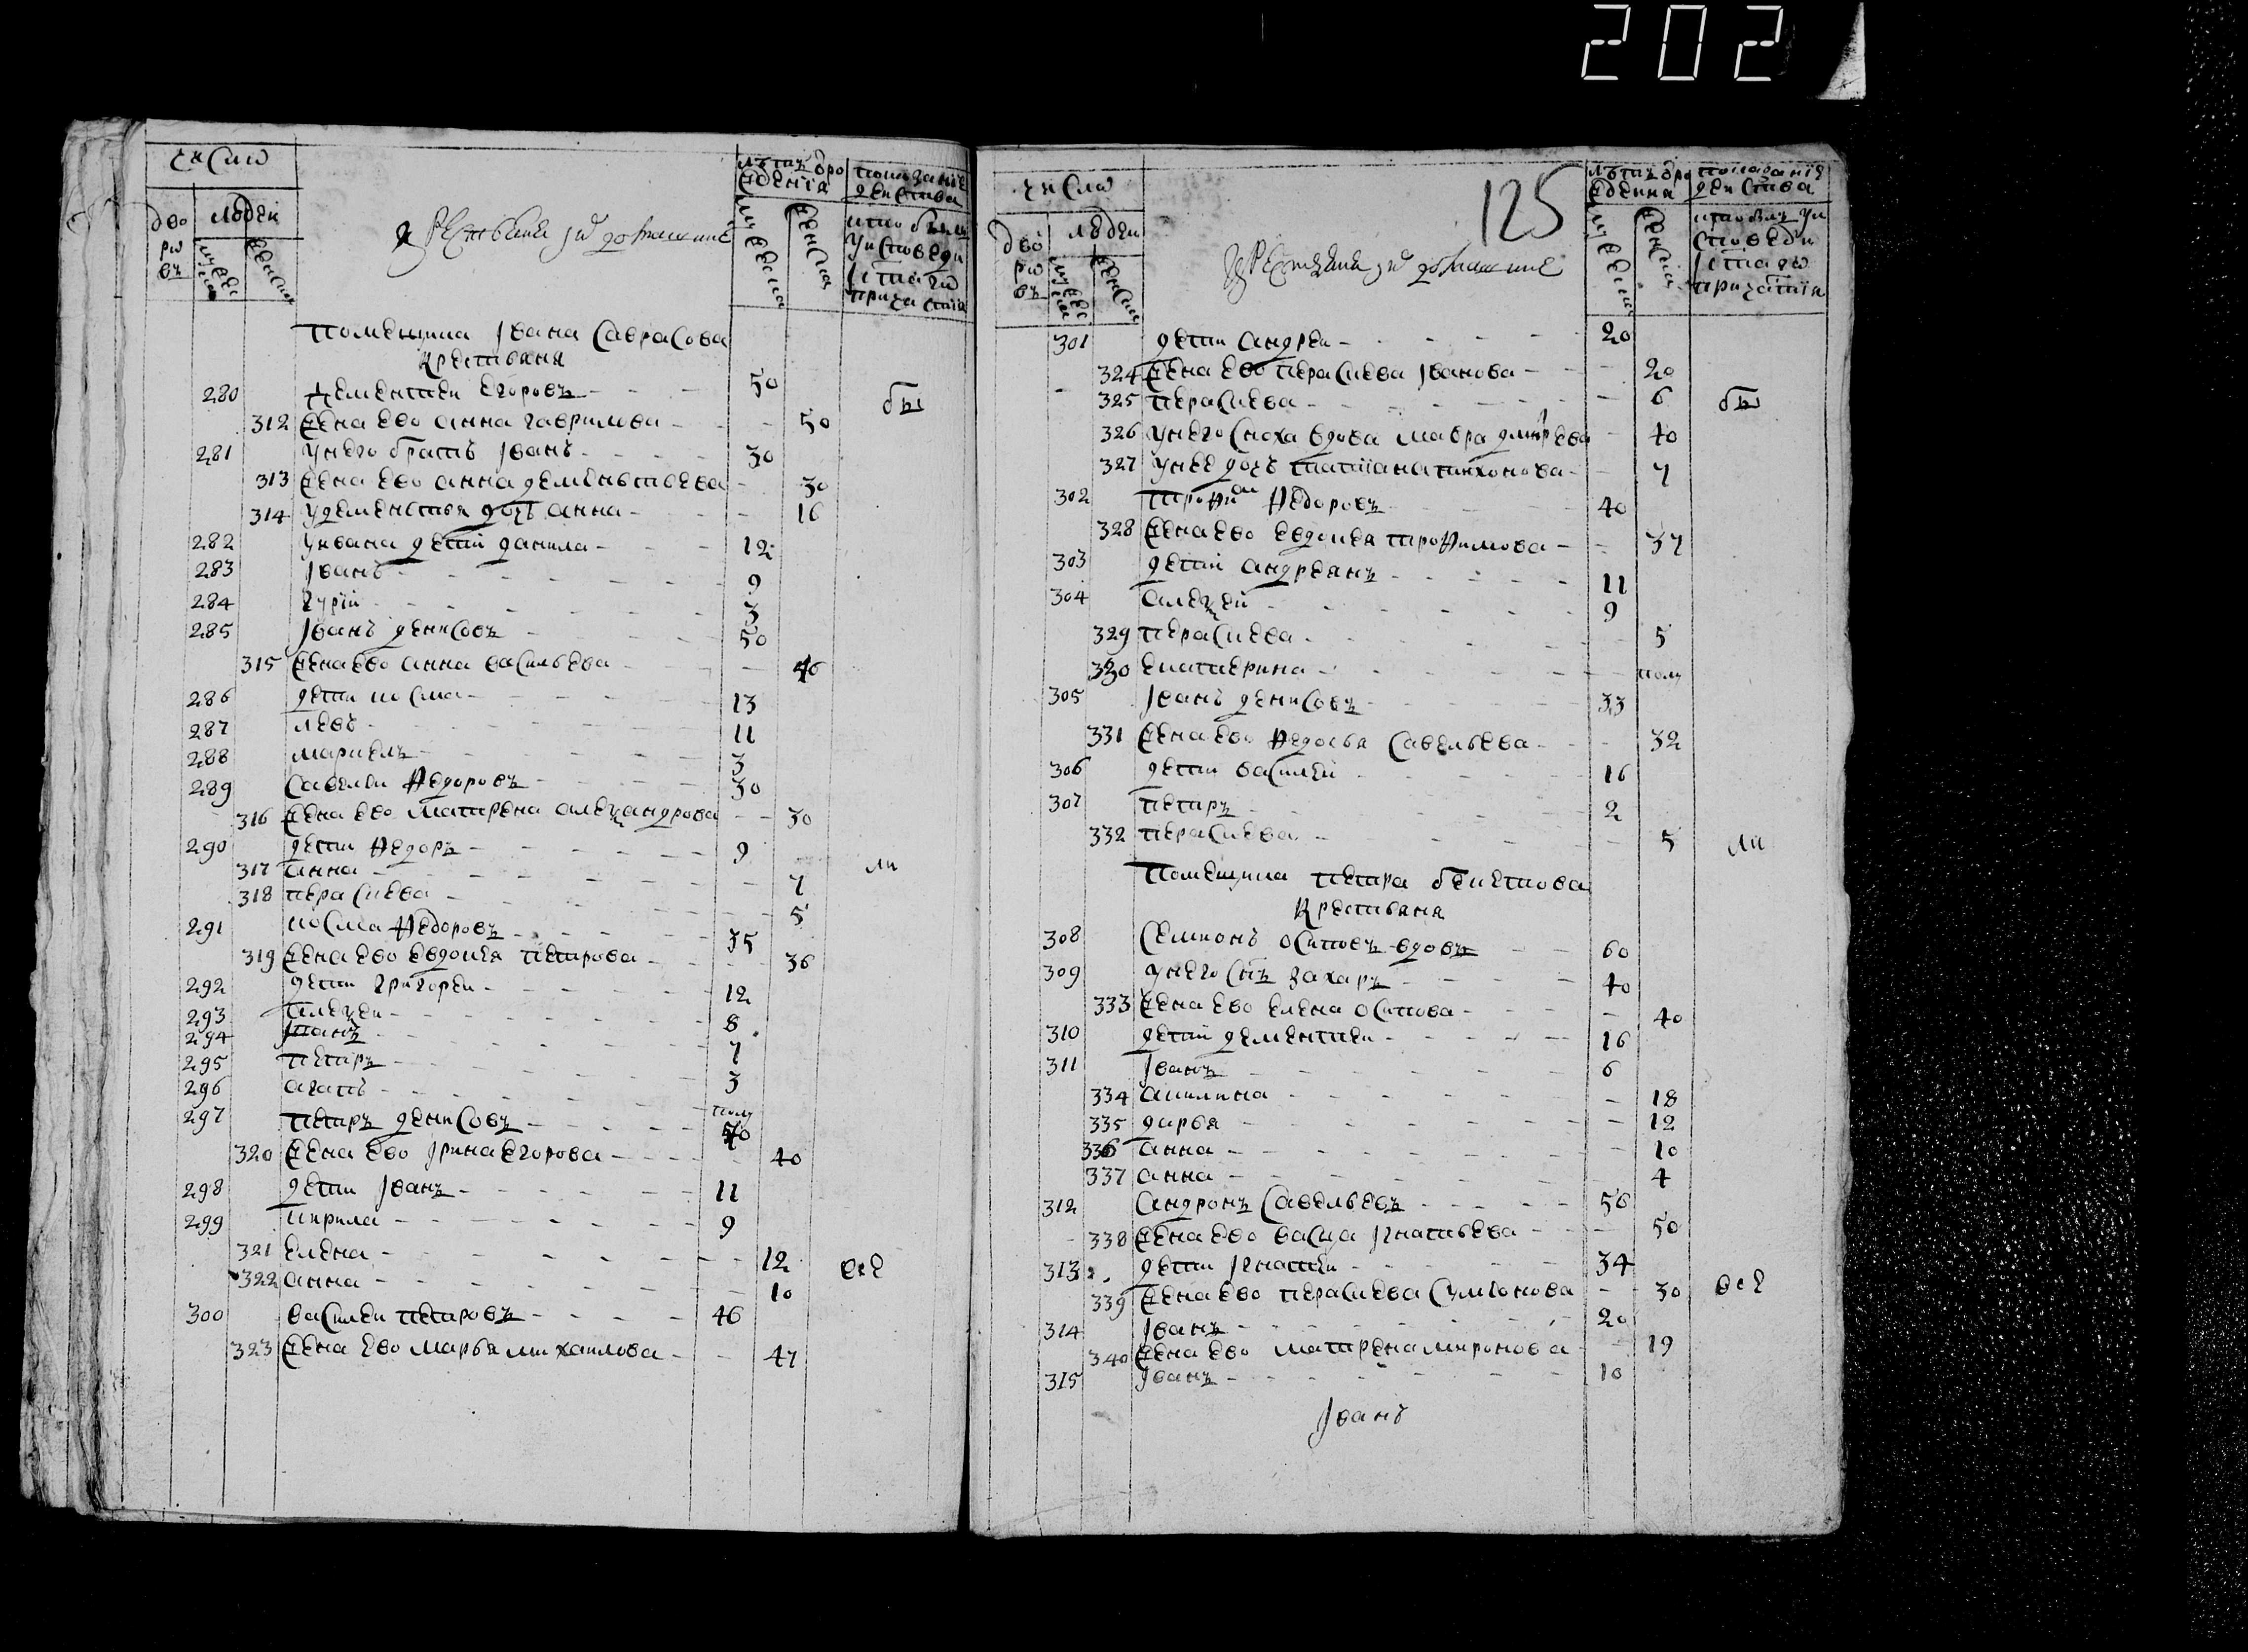 202
число
дворовъ
людей
мужеска
женска
Крестьяня и их домашние
лѣтъ от рождения
мужеска
женска
показание действа
кто былъ у исповеди и святаго причастия
помещика Iвана Саврасова
крестьяня
280 Дементеи Егоровъ - - - 50
бы
312 жена ево анна гаврилова - - - 50
281 у него братъ Iванъ - - - 30
313 жена ево анна дементьева - 30
314 у дементья дочь анна - - - 16
282 у ивана дети данила - - - 12
283 Iванъ - - - 9
284 гурїи - - - 3
285 Iванъ денисовъ - - - 50
315 жена ево анна васильева - - - 46
286 дети козма - - - 13
287 левъ - - - 11
288 маркелъ - - - 3
289 савелеи Ѳедоровъ - - - 30
316 жена ево матрена александрова - - 30
290 дети Ѳедоръ - - - 9
ли
317 анна - - - 7
318 параскева - - - 5
291 косма Ѳедоровъ - - - 35
319 жена ево евдокея петрова - - - 36
292 дети григореи - - - 12
293 алексеи - - - 8
294 Iванъ - - - 7
295 петръ - - - 3
296 агапъ - - - полу
297 петръ денисовъ - - - 40
320 жена ево Iрина егорова - - - 40
298 дети Iванъ - - - 11
299 кирила - - - 9
321 елена - - - 12
всѣ
322 анна - - - 10
300 василеи петровъ - - - 46
323 жена ево марья михаилова - - - 47
125
число
дворовъ
людеи
мужеска
женска
Крестьяня и их домашние
лѣтъ от рождения
мужеска
женска
показанїе действа
кто былъ у исповеди и святаго причастїя
301 дети андреи - - - 20
324 жена ево параскева Iванова - - - 20
325 параскева - - - 6
бы
326 у него сноха вдова мавра дмитрева - 40
327 у нее дочь татїана тихонова - - 7
302 трофим Ѳедоровъ - - - 40
328 жена ево евдокея трофимова - - 37
303 дети андреянъ - - - 11
304 алексеи - - - 9
329 параскева - - - 5
330 екатерина - - - полу
305 Iванъ денисовъ - - - 33
331 жена ево Ѳедосья савельева - - - 32
306 дети василеи - - - 16
307 петръ - - - 2
332 параскева - - - 5
ли
помещика петра бекетова
крестьяня
308 Семионъ осиповъ вдовъ - - 60
309 у него снъ захаръ - - - 40
333 жена ево елена осипова - - - 40
310 дети дементеи - - - 16
311 Iванъ - - - 6
334 акилина - - - 18
335 дарья - - - 12
336 анна - - - 10
337 анна - - - 4
312 андронъ савельевъ - - - 56
338 жена ево васса Iгнатьева - - - 50
313 дети Iгнатеи - - - 34
339 жена ево параскева Симионова - - 30
всѣ
314 Iванъ - - - 20
340 жена ево матрена миронова - - 19
315 Iванъ - - - 10
Iванъ